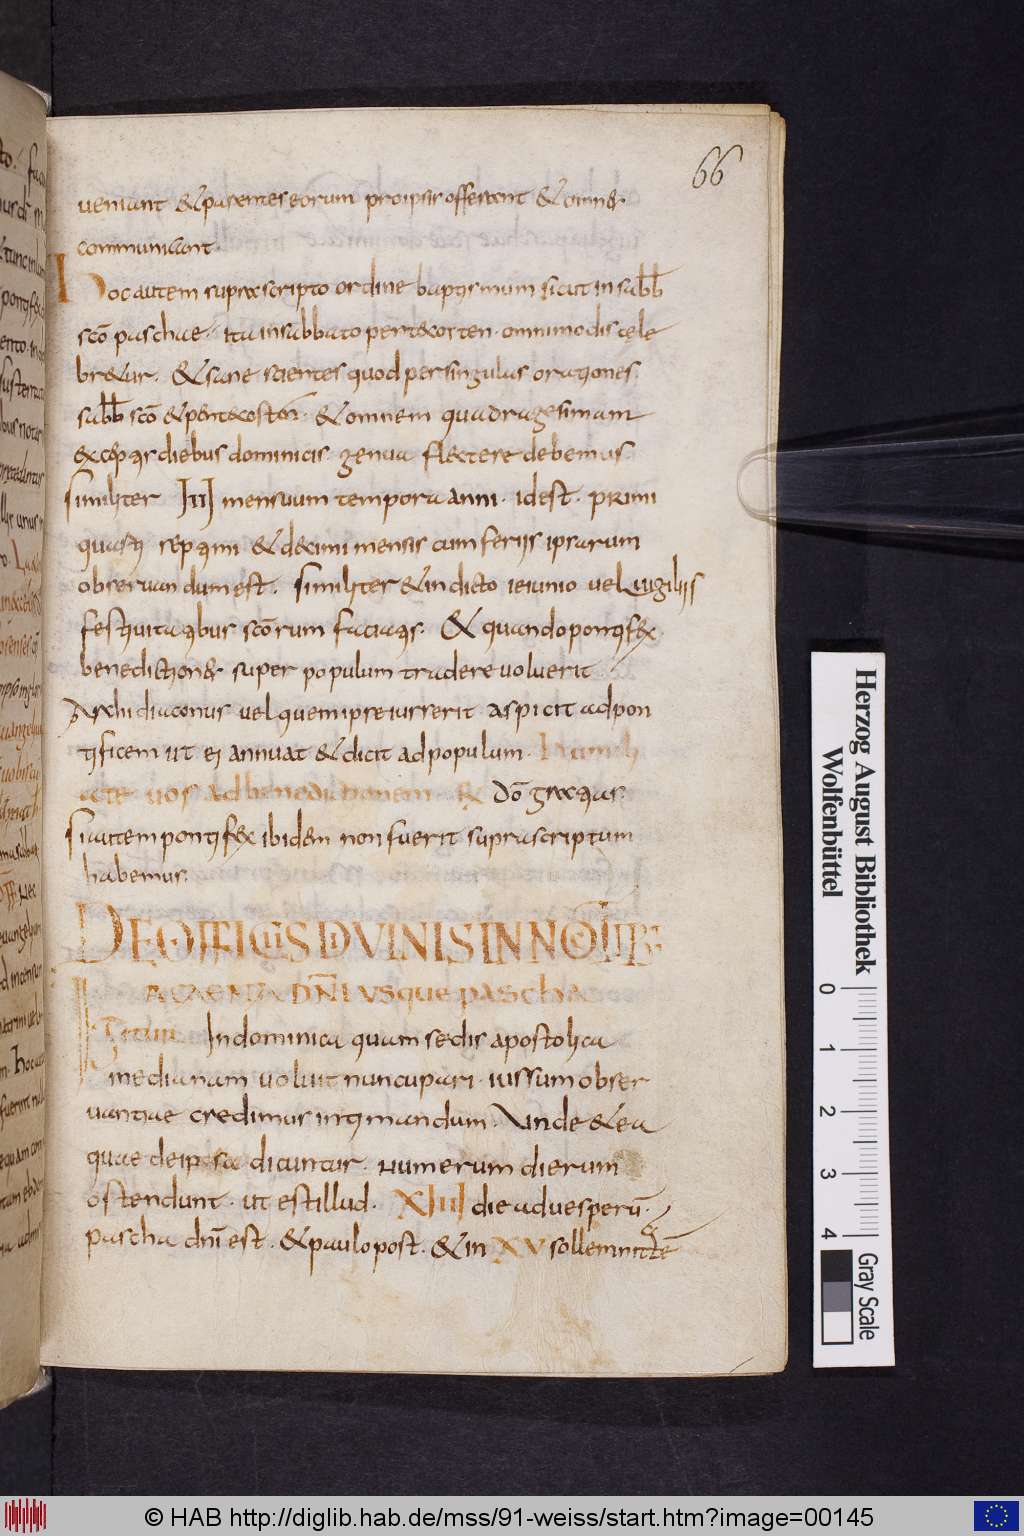 66
ueniant & parentes eorum pro ipsis offerent & omnes
communicant.
Hoc autem suprascripto ordine baptismum sicut in sabb
sco paschae. ita in sabbato pentecosten. omnimodis cele
bretur. & sane scientes quod per singulas orationes
sabb sco & pentecosten. & omnem quadragesimam
exceptis diebus dominicis genua flectere debemus.
similiter IIII mensuum tempora anni. id est. primi
quarti septimi & decimi mensis cum feriis ipsarum
obseruandum est. similiter & indicto ieiunio uel uigiliis
festiuitatibus scorum faciatis. & quando pontifex
benedictiones super populum tradere uoluerit
Archidiaconus uel quem ipse iusserit aspicit ad pon
tificem ut ei annuat & dicit ad populum. Humili
ate uos ad benedictionem R do gratias.
si autem pontifex ibidem non fuerit suprascriptum
habemus.
DE OFFICIIS DIUINIS IN NOCTIB:
A CAENA DNI USque pascha
In dominica quam sedis apostolica
medianam uoluit nuncupari. iussum obser
uantiae credimus intimandum. Unde & ea
quae de ipsa dicuntur. numerum dierum
ostendunt. ut est illud. XIIII die ad uesperū.
Pascha dni est. & paulo post. & in XV sollemnitatē
Herzog August Bibliothek
Wolfenbüttel
0 1 2 3 4
Gray Scale
© HAB http://diglib.hab.de/mss/91-weiss/start.htm?image=00145